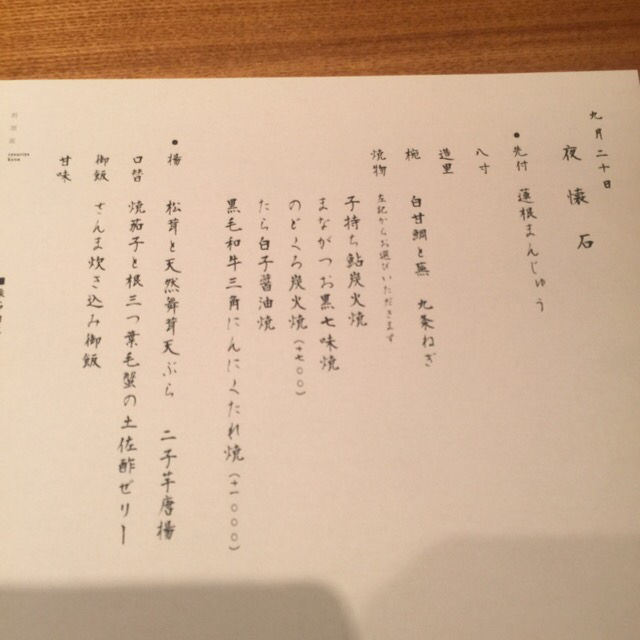 九月二十日
夜懐石
● 先付 蓮根まんじゅう
八寸
造里
椀 白甘鯛と蕪 九条ねぎ
焼物 左記からお選びいただきます
子持ち鮎炭火焼
まながつお黒七味焼
のどくろ炭火焼(+七〇〇)
たら白子醤油焼
黒毛和牛三角にんにくたれ焼(+一〇〇〇)
● 揚 松茸と天然舞茸天ぷら 二子芋唐揚
口替 焼茄子と根三つ葉毛蟹の土佐酢ゼリー
御飯 さんま炊き込み御飯
甘味